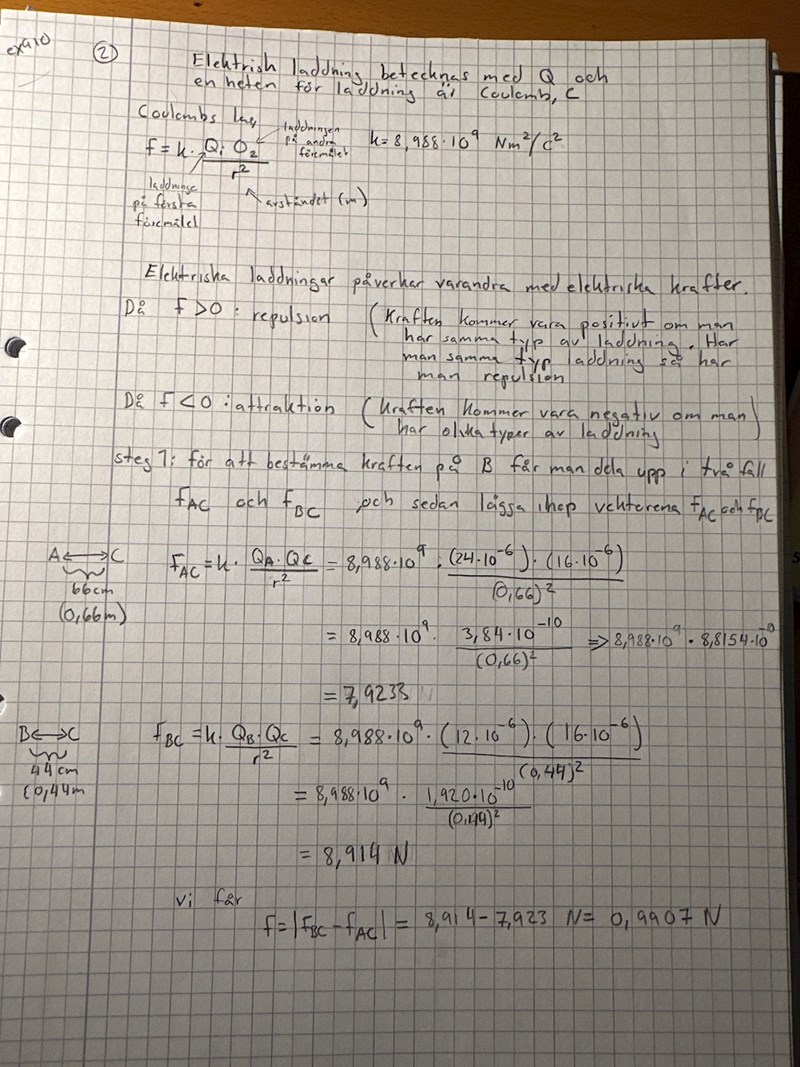 ②
Elektrisk laddning betecknas med Q och
en heten för laddning är Coulomb, C
Coulombs lag
f = k · Q₁ Q₂ / r²
laddningen
på andra
föremålet
k = 8,988 · 10⁹ Nm²/C²
laddninge
på första
föremålel
avståndet (m)
Elektriska laddningar påverkar varandra med elektriska krafter.
Då f > 0 : repulsion (Kraften kommer vara positivt om man
har samma typ av laddning. Har
man samma typ laddning så har
man repulsion
Då f < 0 : attraktion (Kraften kommer vara negativ om man)
har olika typer av laddning
steg 1: för att bestämma kraften på B får man dela upp i två fall
f_AC och f_BC och sedan lägga ihop vektorena f_AC och f_BC
A ↔ C
66cm
(0,66m)
f_AC = k · Q_A · Q_C / r² = 8,988 · 10⁹ · (24 · 10⁻⁶) · (16 · 10⁻⁶) / (0,66)²
= 8,988 · 10⁹ · 3,84 · 10⁻¹⁰ / (0,66)² ⇒ 8,988 · 10⁹ · 8,8154 · 10⁻¹⁰
= 7,9233
B ↔ C
44 cm
(0,44m
f_BC = k · Q_B · Q_C / r² = 8,988 · 10⁹ · (12 · 10⁻⁶) · (16 · 10⁻⁶) / (0,44)²
= 8,988 · 10⁹ · 1,920 · 10⁻¹⁰ / (0,44)²
= 8,914 N
vi får
f = |f_BC − f_AC| = 8,914 − 7,923 N = 0,9907 N